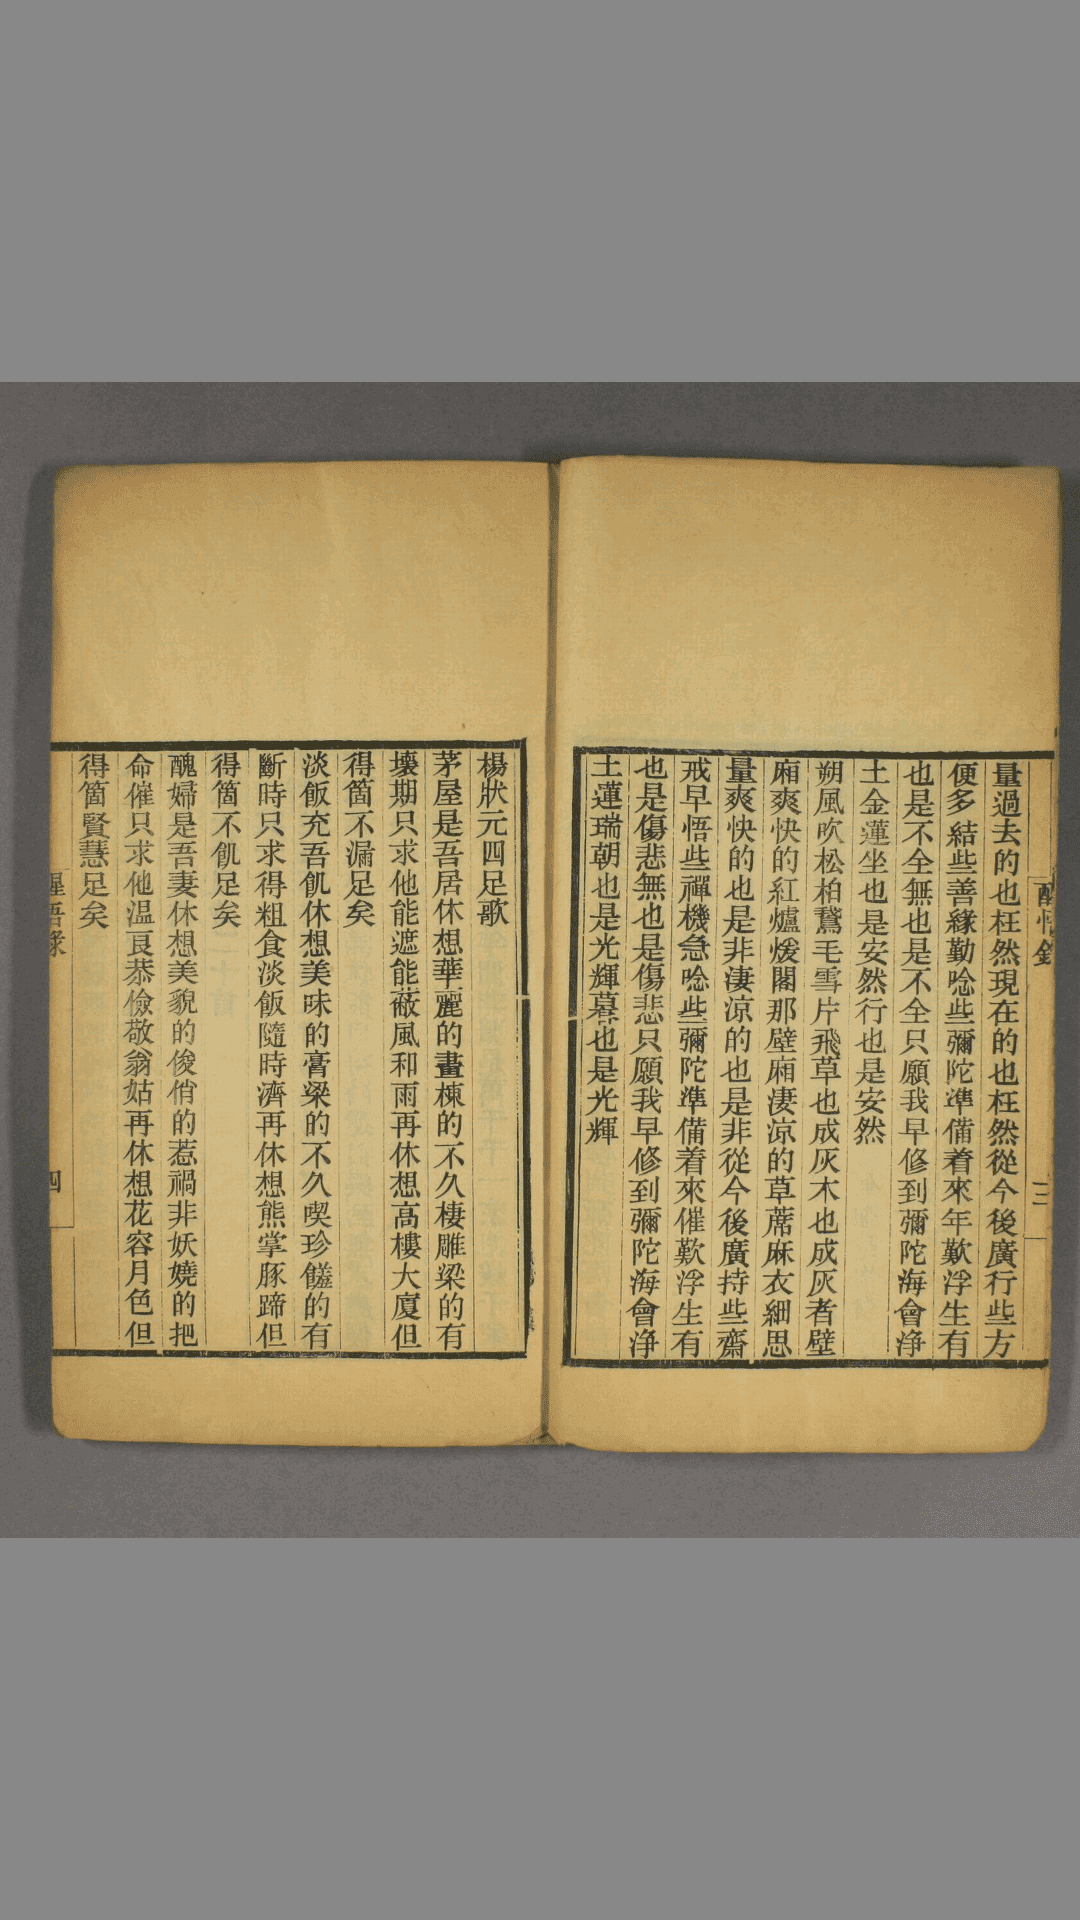 醒悟錄
三
量過去的也枉然現在的也枉然從今後廣行些方
便多結些善緣勤唸些彌陀準備着來年歎浮生有
也是不全無也是不全只願我早修到彌陀海會淨
土金蓮坐也是安然行也是安然
朔風吹松柏鵞毛雪片飛草也成灰木也成灰者壁
廂爽快的紅爐煖閣那壁廂淒涼的草蓆麻衣細思
量爽快的也是非淒涼的也是非從今後廣持些齋
戒早悟些禪機急唸些彌陀準備着來催歎浮生有
也是傷悲無也是傷悲只願我早修到彌陀海會淨
土蓮瑞朝也是光輝暮也是光輝
楊狀元四足歌
茅屋是吾居休想華麗的畫棟的不久棲雕梁的有
壞期只求他能遮能蔽風和雨再休想高樓大廈但
得箇不漏足矣
淡飯充吾飢休想美味的膏粱的不久喫珍饈的有
斷時只求得粗食淡飯隨時濟再休想熊掌豚蹄但
得箇不飢足矣
醜婦是吾妻休想美貌的俊俏的惹禍非妖嬈的把
命催只求他温良恭儉敬翁姑再休想花容月色但
得箇賢慧足矣
醒悟錄
四